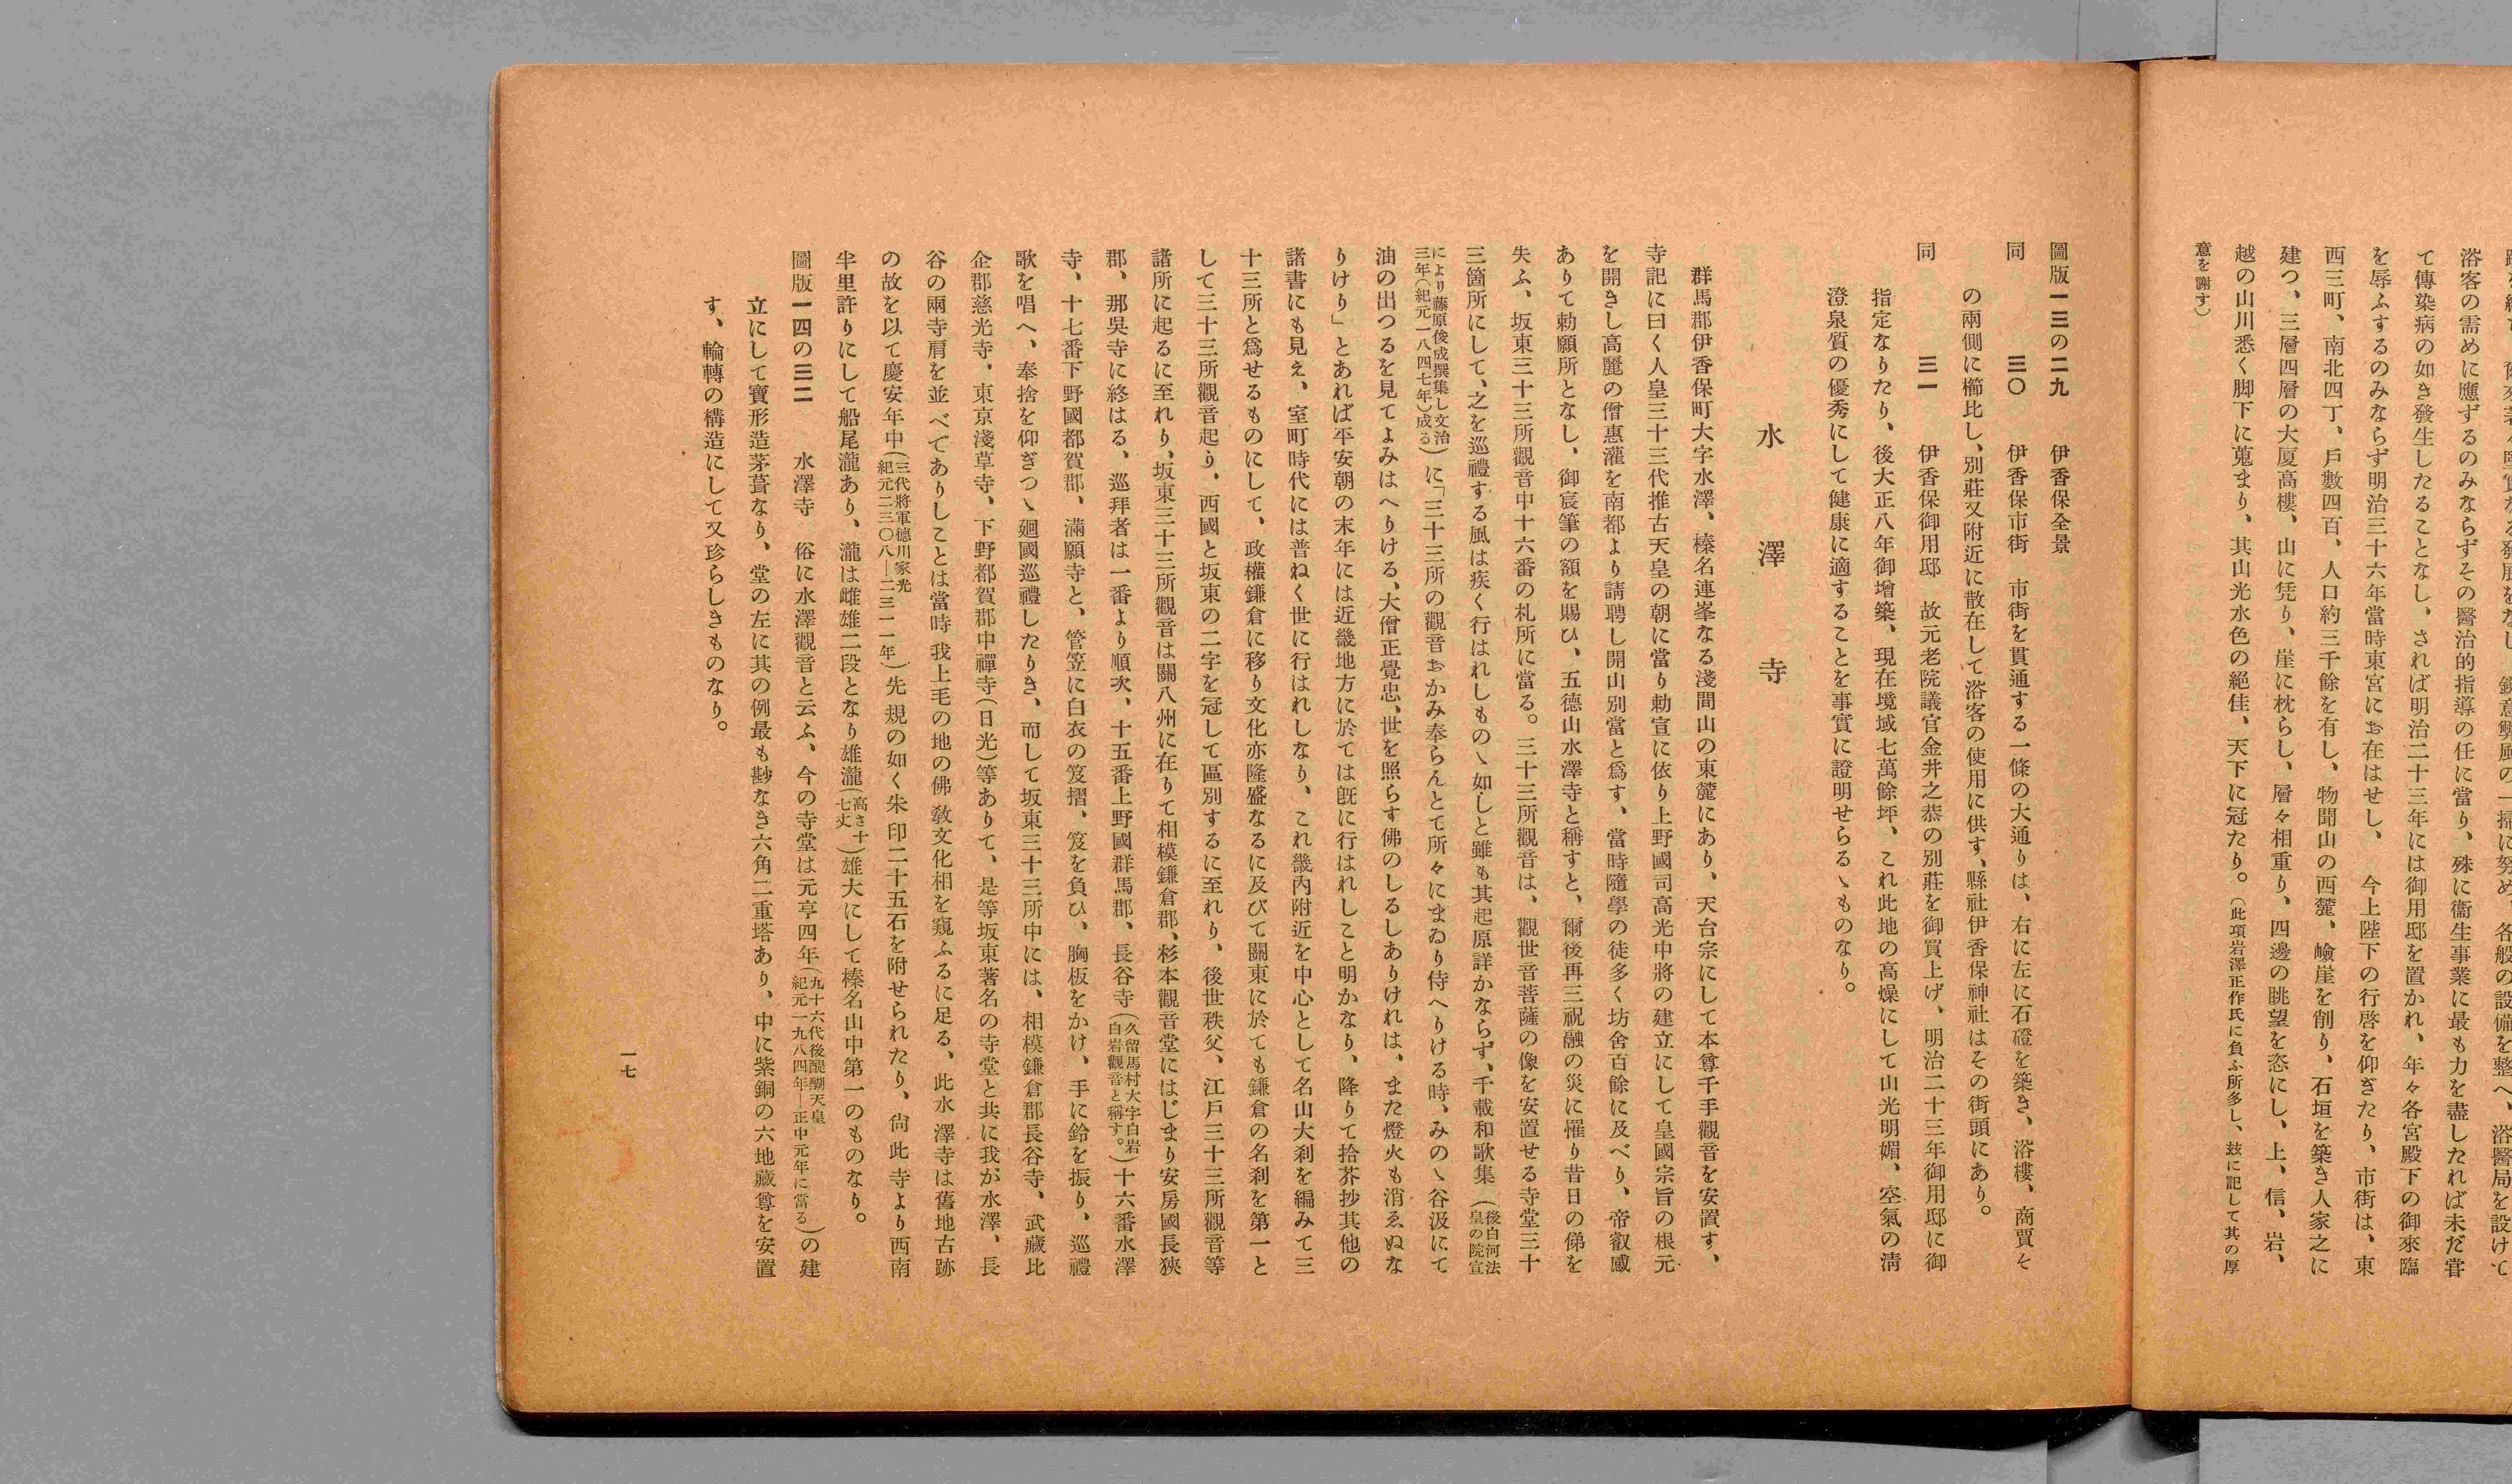 浴客の需めに應ずるのみならずその醫治的指導の任に當り、殊に衞生事業に最も力を盡したれば未だ甞
て傳染病の如き發生したることなし、されば明治二十三年には御用邸を置かれ、年々各宮殿下の御來臨
を辱ふするのみならず明治三十六年當時東宮にお在はせし、今上陛下の行啓を仰ぎたり、市街は、東
西三町、南北四丁、戶數四百、人口約三千餘を有し、物聞山の西麓、嶮崖を削り、石垣を築き人家之に
建つ、三層四層の大厦高樓、山に凭り、崖に枕らし、層々相重り、四邊の眺望を恣にし、上、信、岩、
越の山川悉く脚下に蒐まり、其山光水色の絕佳、天下に冠たり。(此項岩澤正作氏に負ふ所多し、玆に記して其の厚
意を謝す)
圖版一三の二九 伊香保全景
同 三〇 伊香保市街 市街を貫通する一條の大通りは、右に左に石磴を築き、浴樓、商賈そ
の兩側に櫛比し、別莊又附近に散在して浴客の使用に供す、縣社伊香保神社はその街頭にあり。
同 三一 伊香保御用邸 故元老院議官金井之恭の別莊を御買上げ、明治二十三年御用邸に御
指定なりたり、後大正八年御增築、現在境域七萬餘坪、これ此地の高燥にして山光明媚、空氣の淸
澄泉質の優秀にして健康に適することを事實に證明せらるゝものなり。
水澤寺
群馬郡伊香保町大字水澤、榛名連峯なる淺間山の東麓にあり、天台宗にして本尊千手觀音を安置す、
寺記に曰く人皇三十三代推古天皇の朝に當り勅宣に依り上野國司高光中將の建立にして皇國宗旨の根元
を開きし高麗の僧惠灌を南都より請聘し開山別當と爲す、當時隨學の徒多く坊舍百餘に及べり、帝叡感
ありて勅願所となし、御宸筆の額を賜ひ、五德山水澤寺と稱すと、爾後再三祝融の災に罹り昔日の俤を
失ふ、坂東三十三所觀音中十六番の札所に當る。三十三所觀音は、觀世音菩薩の像を安置せる寺堂三十
三箇所にして、之を巡禮する風は疾く行はれしものゝ如しと雖も其起原詳かならず、千載和歌集(後白河法
皇の院宣
により藤原俊成撰集し文治
三年(紀元一八四七年)成る)に「三十三所の觀音おかみ奉らんとて所々にまゐり侍へりける時、みのゝ谷汲にて
油の出つるを見てよみはへりける、大僧正覺忠、世を照らす佛のしるしありけれは、また燈火も消ゑぬな
りけり」とあれば平安朝の末年には近畿地方に於ては旣に行はれしこと明かなり、降りて拾芥抄其他の
諸書にも見え、室町時代には普ねく世に行はれしなり、これ畿內附近を中心として名山大刹を編みて三
十三所と爲せるものにして、政權鎌倉に移り文化亦隆盛なるに及びて關東に於ても鎌倉の名刹を第一と
して三十三所觀音起り、西國と坂東の二字を冠して區別するに至れり、後世秩父、江戶三十三所觀音等
諸所に起るに至れり、坂東三十三所觀音は關八州に在りて相模鎌倉郡、杉本觀音堂にはじまり安房國長狹
郡、那吳寺に終はる、巡拜者は一番より順次、十五番上野國群馬郡、長谷寺(久留馬村大字白岩
白岩觀音と稱す。)十六番水澤
寺、十七番下野國都賀郡、滿願寺と、管笠に白衣の笈摺、笈を負ひ、胸板をかけ、手に鈴を振り、巡禮
歌を唱へ、奉捨を仰ぎつゝ廻國巡禮したりき、而して坂東三十三所中には、相模鎌倉郡長谷寺、武藏比
企郡慈光寺、東京淺草寺、下野都賀郡中禪寺(日光)等ありて、是等坂東著名の寺堂と共に我が水澤、長
谷の兩寺肩を並べてありしことは當時我上毛の地の佛敎文化相を窺ふるに足る、此水澤寺は舊地古跡
の故を以て慶安年中(三代將軍德川家光
紀元二三〇八―二三一一年)先規の如く朱印二十五石を附せられたり、尙此寺より西南
半里許りにして船尾瀧あり、瀧は雌雄二段となり雄瀧(高さ十
七丈)雄大にして榛名山中第一のものなり。
圖版一四の三二 水澤寺 俗に水澤觀音と云ふ、今の寺堂は元亨四年(九十六代後醍醐天皇
紀元一九八四年―正中元年に當る)の建
立にして寶形造茅葺なり、堂の左に其の例最も尠なき六角二重塔あり、中に紫銅の六地藏尊を安置
す、輪轉の構造にして又珍らしきものなり。
一七